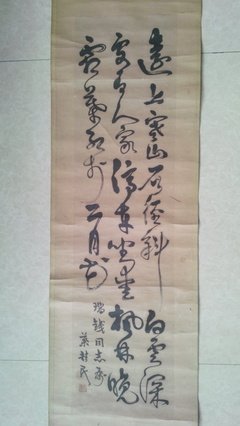 遠上寒山石徑斜白雲深
處有人家停車坐愛楓林晚
霜葉紅於二月花
瑞同志
民